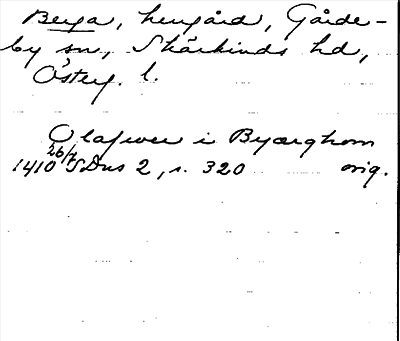 Berga, herrgård, Gårde-
by sn, Skärkinds hd,
Österg. l.
Olafwer i Byærghom
1410 26/7 SDns 2, s. 320 orig.